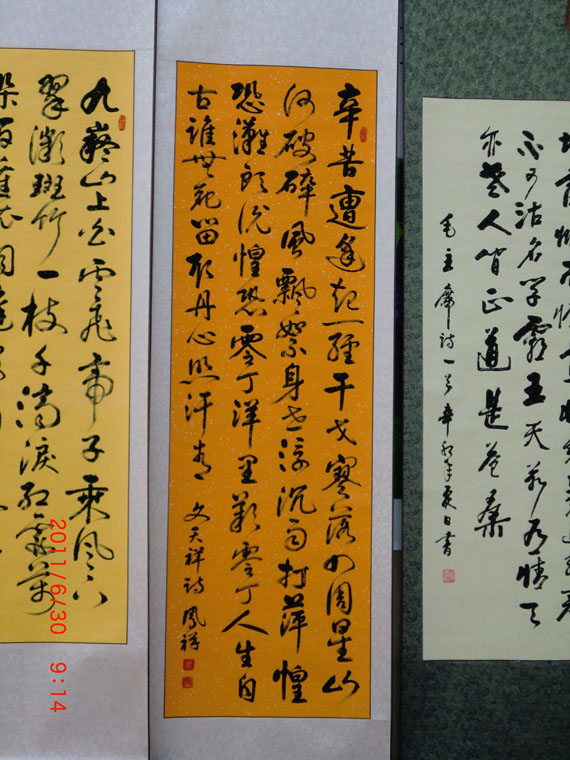 不可沽名学霸王天若有情天
亦老人間正道是苍桑
毛主席诗一首辛卯年夏日書
辛苦遭逢起一經干戈寥落四周星山
河破碎風飄絮身世浮沉雨打萍惶
恐灘頭说惶恐零丁洋里歎零丁人生自
古誰無死留取丹心照汗青
文天祥詩 鳳祥
九嶷山上白雲飛帝子乘風下
翠微斑竹一枝千滴淚红霞万
朵百重衣洞庭
2011/6/30 9:14